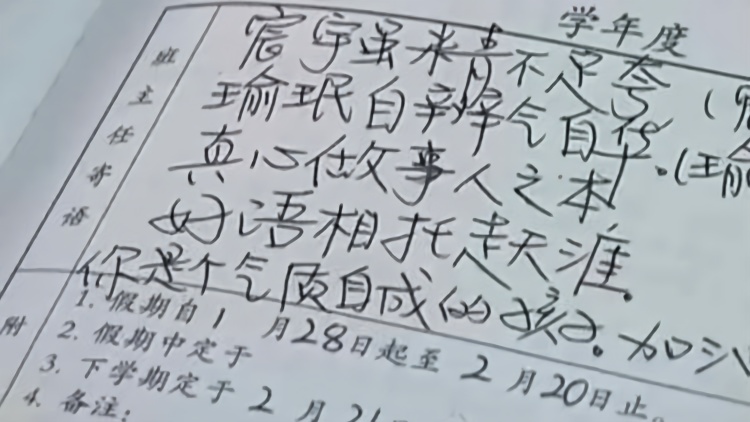 学年度
班主任寄语
宸宇虽未青不足夸
瑜珉自辉气自华。(瑜
真心做事人之本
好语相托走天涯。
你是个气质自成的孩子。加
附
1. 假期自1月28日起至2月20日止。
2. 假期中定于
3. 下学期定于2月21
4. 备注: